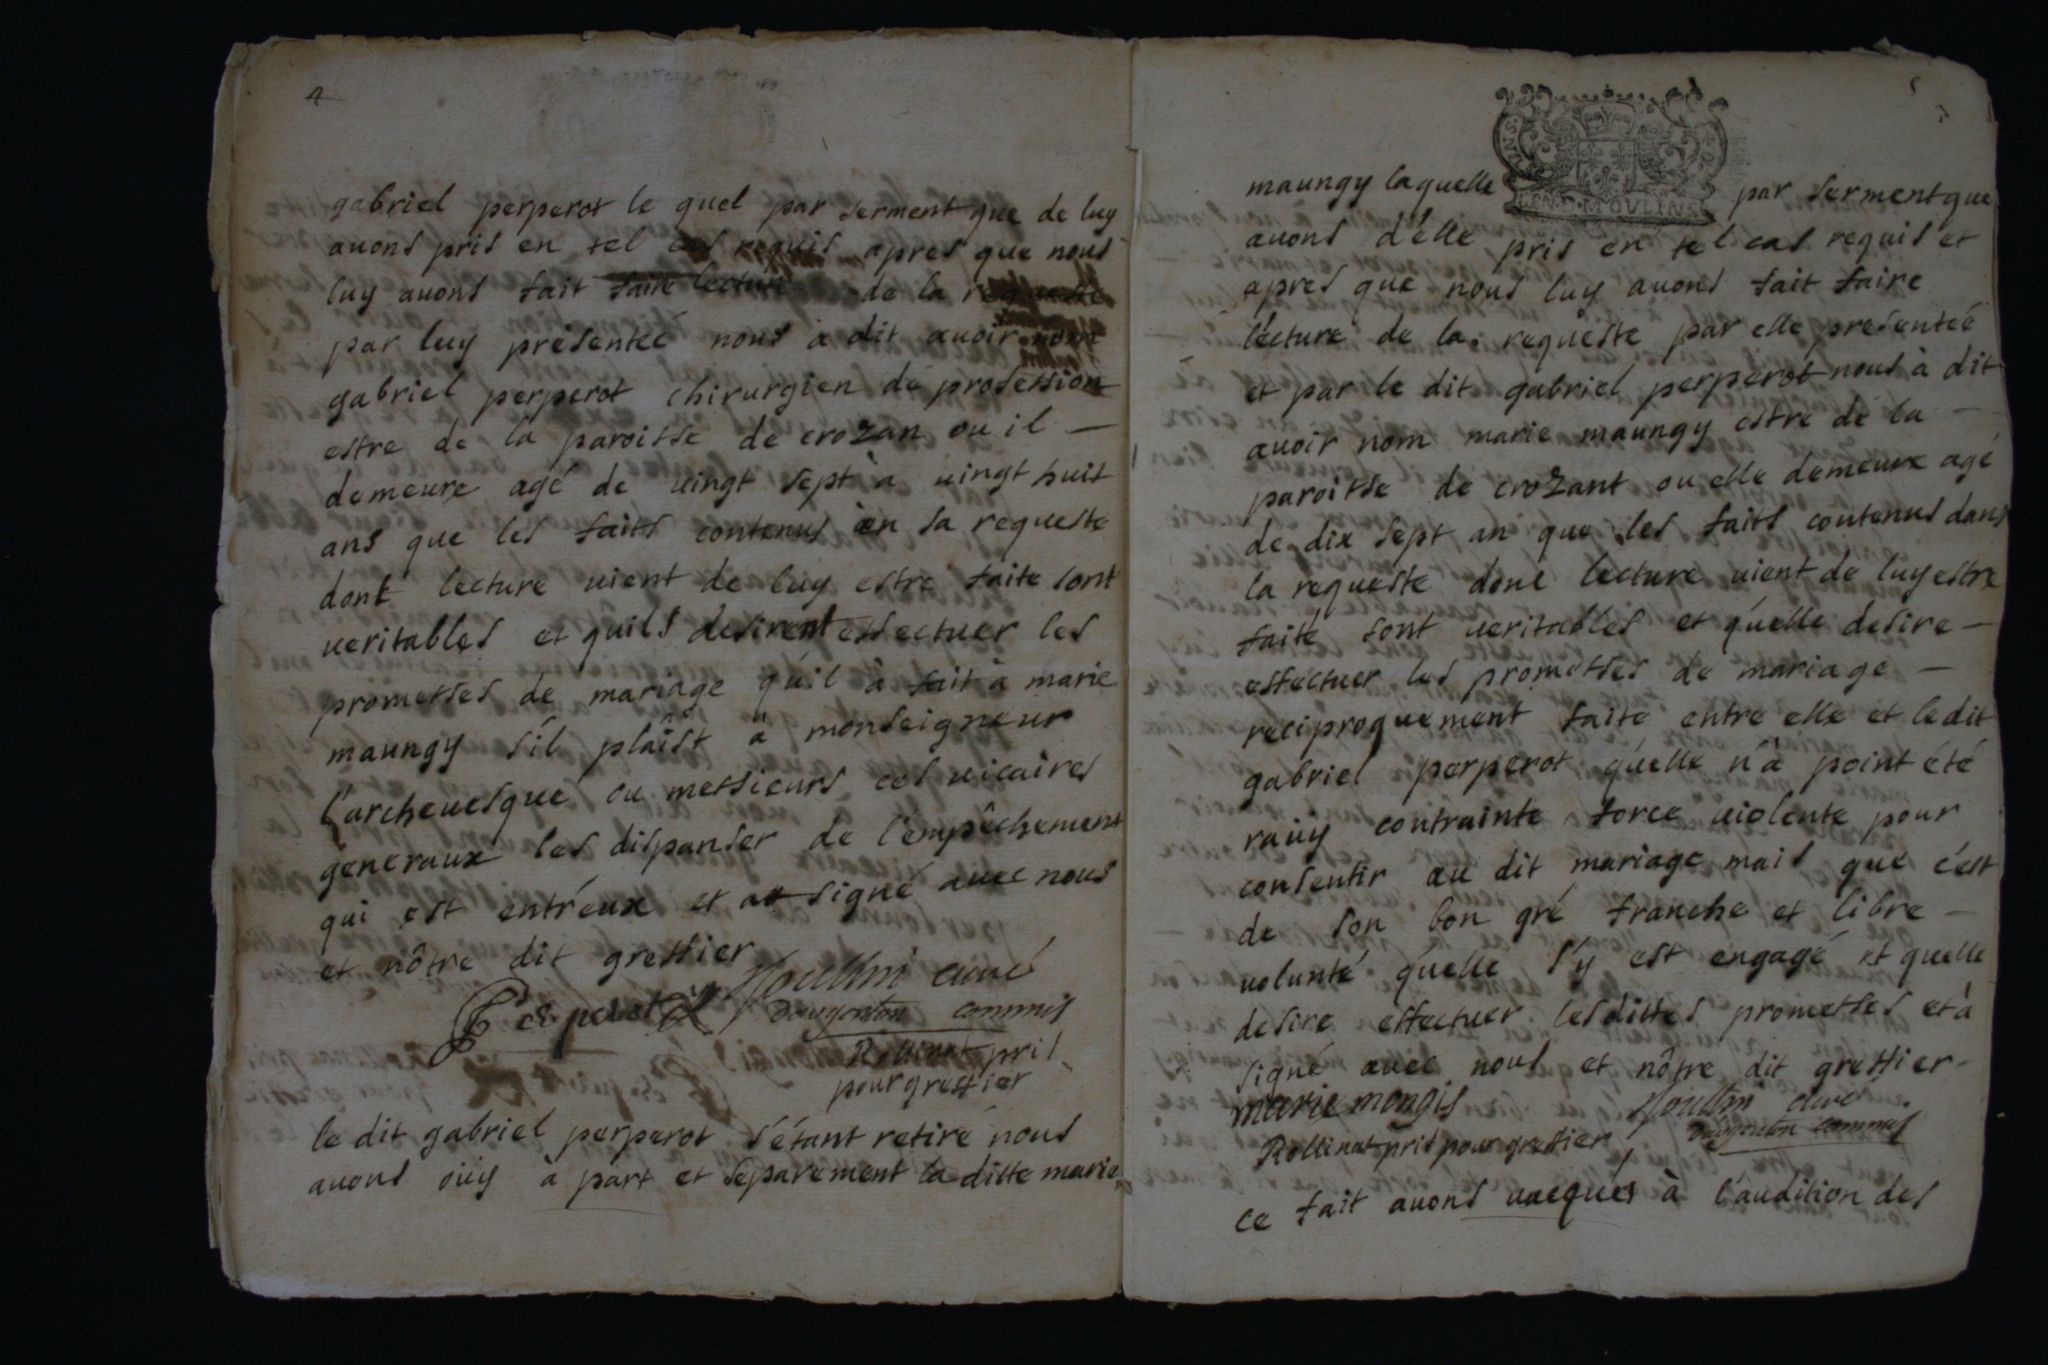 4
gabriel perperot le quel par serment que de luy
auons pris en tel cas requis apres que nous
luy auons fait faire lecture de la requeste
par luy presenteé nous à dit auoir nom
gabriel perperot chirurgien de profession
estre de la paroisse de crozan ou il —
demeure agé de uingt sept à uingt huit
ans que les faits contenus en sa requeste
dont lecture uient de luy estre faite sont
ueritables et quils desirent effectuer les
promesses de mariage qu'il à fait à marie
maungy s'il plaîst à monseigneur
l'archeuesque ou messieurs ces uicaires
generaux les dispanser de l'empêchement
qui est entr'eux et at signé auec nous
et nôtre dit greffier
Perperot curé
commis
Rollinat pris
pour greffier
le dit gabriel perperot s'étant retiré nous
auons oüy à part et separement la ditte marie
5
GEN D MOVLINS
maungy laquelle par serment que
auons d'elle pris en tel cas requis et
apres que nous luy auons fait faire
lecture de la requeste par elle presenteé
et par le dit gabriel perperot nous à dit
auoir nom marie maungy estre de la —
paroisse de crozant ou elle demeure agé
de dix sept an que les faits contenus dans
la requeste dont lecture uient de luy estre
faite sont ueritables et qu'elle desire —
effectuer les promesses de mariage —
reciproquement faite entre elle et le dit
gabriel perperot qu'elle n'à point été
rauy contrainte force uiolente pour
consentir au dit mariage mais que c'est
de son bon gré franche et libre —
uolunté qu'elle s'y est engagé et quelle
desire effectuer lesdittes promesses et à
signé auec nous et nôtre dit greffier —
marie mongis curé
Rollinat pris pour greffier commis
ce fait auons uacqués à l'audition des